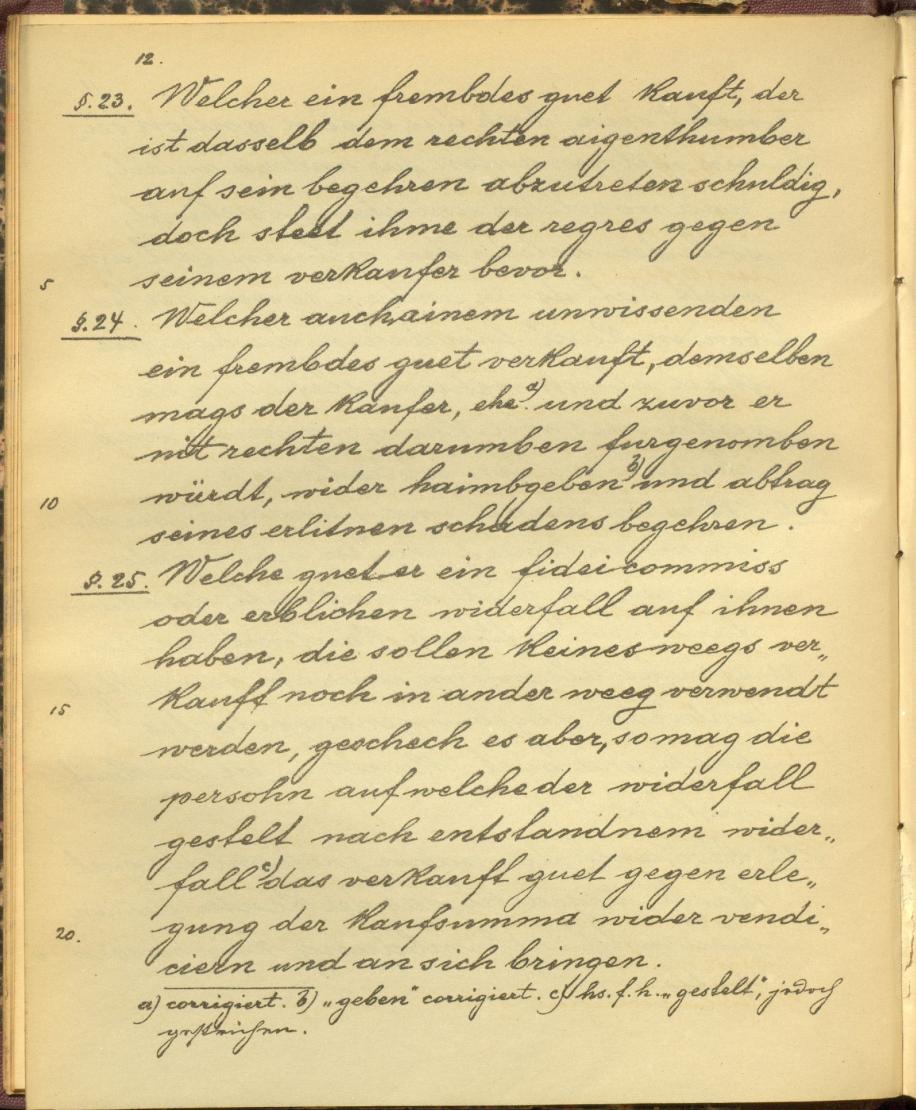 12.
§. 23. Welcher ein frembdes guet kauft, der
ist dasselb dem rechten aigenthumber
auf sein begehren abzutreten schuldig,
doch steet ihme der regres gegen
5 seinem verkaufer bevor.
§. 24. Welcher auch ainem unwissenden
ein frembdes guet verkauft, demselben
mags der kaufer, ehe a) und zuvor er
mit rechten darumben furgenomben
10 würdt, wider haimbgeben b) und abtrag
seines erlitnen schadens begehren.
§. 25. Welche gueter ein fidei commiss
oder erblichen widerfall auf ihnen
haben, die sollen keines weegs ver„
15 kauff noch in ander weeg verwendt
werden, geschech es aber, so mag die
persohn auf welche der widerfall
gestelt nach entstandnem wider„
fall c) das verkauft guet gegen erle„
20. gung der kaufsumma wider vendi„
ciern und an sich bringen.
a) corrigiert. b) „geben" corrigiert. c) hs. f. h. „gestelt", jedoch
gestrichen.